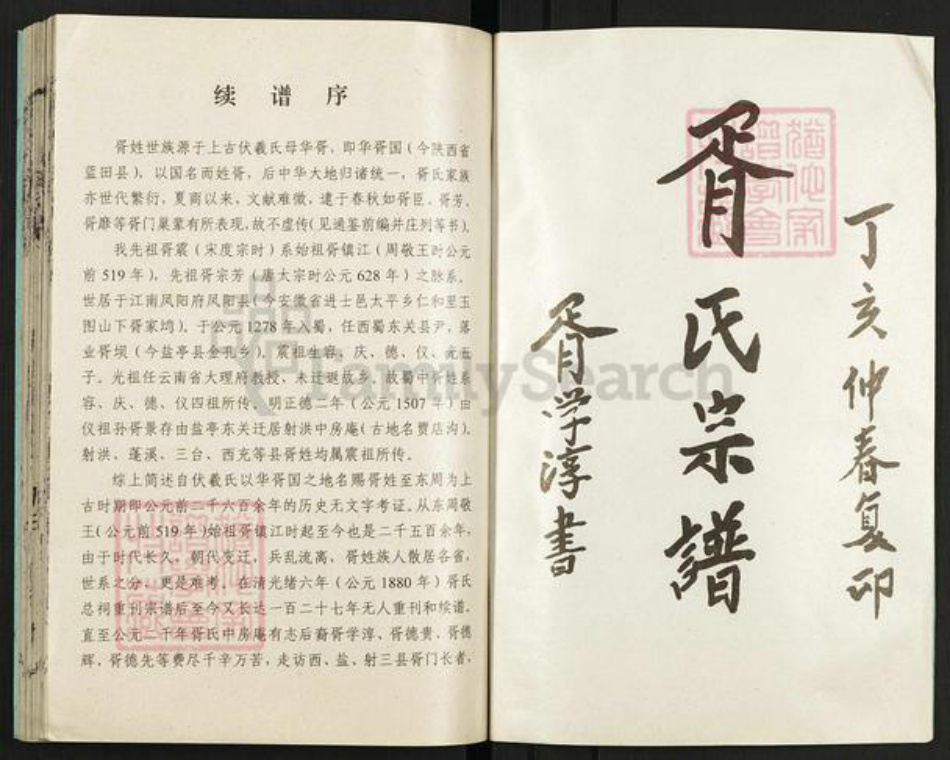 续谱序
胥姓世族源于上古伏羲氏母华胥，即华胥国（今陕西省
蓝田县），以国名而姓胥，后中华大地归诸统一，胥氏家族
亦世代繁衍，夏商以来，文献难徵，逮于春秋如胥臣、胥芳、
胥靡等胥门巢辈有所表现，故不虚传（见通鉴前编并庄列等书）。
我先祖胥震（宋度宗时）系始祖胥镇江（周敬王时公元
前519年），先祖胥宗芳（唐太宗时公元628年）之脉系。
世居于江南凤阳府凤阳县（今安徽省进士邑太平乡仁和里玉
图山下胥家坞）。于公元1278年入蜀，任西蜀东关县尹，落
业胥坝（今盐亭县金孔乡）。震祖生容、庆、德、仪、光五
子。光祖任云南省大理府教授，未迁返故乡。故蜀中胥姓系
容、庆、德、仪四祖所传，明正德二年（公元1507年）由
仪祖孙胥景存由盐亭东关迁居射洪中房庵（古地名贾店沟）。
射洪、蓬溪、三台、西充等县胥姓均属震祖所传。
综上简述自伏羲氏以华胥国之地名赐胥姓至东周为上
古时期即公元前二千六百余年的历史无文字考证。从东周敬
王（公元前519年）始祖胥镇江时起至今也是二千五百余年，
由于时代长久，朝代变迁，兵乱流离，胥姓族人散居各省，
世系之分，更是难考，在清光绪六年（公元1880年）胥氏
总祠重刊宗谱后至今又长达一百二十七年无人重刊和续谱。
直至公元二千年胥氏中房庵有志后裔胥学淳、胥德贵、胥德
辉、胥德先等费尽千辛万苦，走访西、盐、射三县胥门长者，
丁亥仲春复印
胥氏宗譜
胥学淳書
FamilySearch